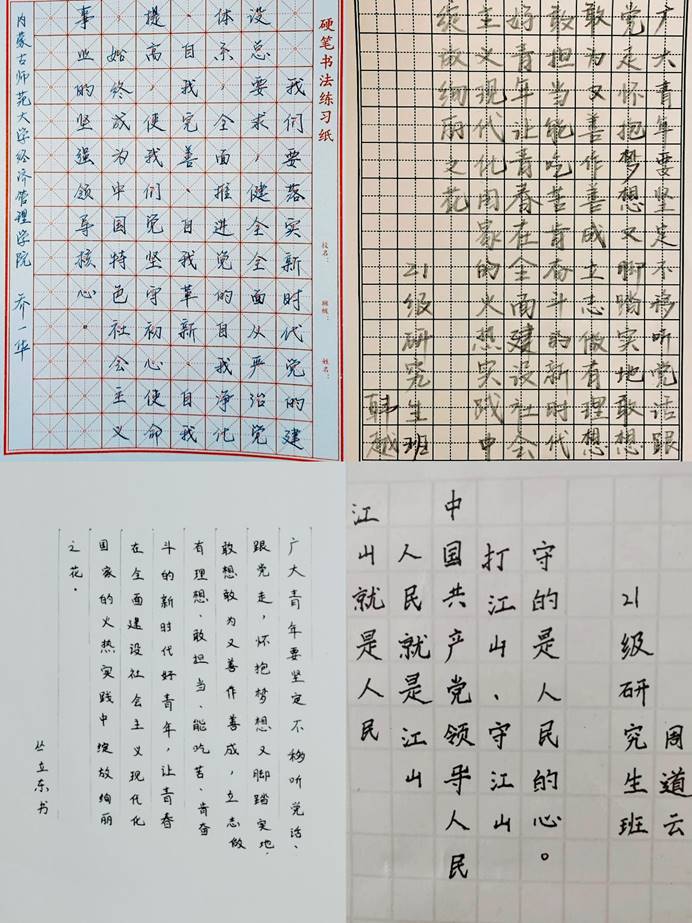 硬笔书法练习纸
校名：
班级：
姓名：
我们要落实新时代党的建
设总要求，健全全面从严治党
体系，全面推进党的自我净化
、自我完善、自我革新、自我
提高，使我们党坚守初心使命
始终成为中国特色社会主义
事业的坚强领导核心。
内蒙古师范大学经济管理学院 乔一华
广大青年要坚定不移听党话跟
党走怀抱梦想又脚踏实地敢想
敢为又善作善成立志做有理想
敢担当能吃苦肯奋斗的新时代
好青年让青春在全面建设社会
主义现代化国家的火热实践中
绽放绚丽之花
21级研究生班
韩越
广大青年要坚定不移听党话、
跟党走，怀抱梦想又脚踏实地，
敢想敢为又善作善成，立志做
有理想、敢担当、能吃苦、肯奋
斗的新时代好青年，让青春
在全面建设社会主义现代化
国家的火热实践中绽放绚丽
之花。
丛立东书
江山就是人民
人民就是江山
中国共产党领导人民
打江山、守江山
守的是人民的心。
21级研究生班
周道云